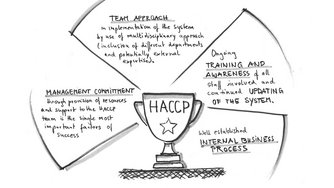 TEAM APPROACH
in implementation of the system
by use of multidisciplinary approach
(inclusion of different departments
and potentially external
expertise).
MANAGEMENT COMMITMENT
through provision of resources
and support to the HACCP
team is the single most
important factors of
success
HACCP
Ongoing
TRAINING AND
AWARENESS of all
staff involved and
continued UPDATING
OF THE SYSTEM.
Well established
INTERNAL BUSINESS
PROCESS